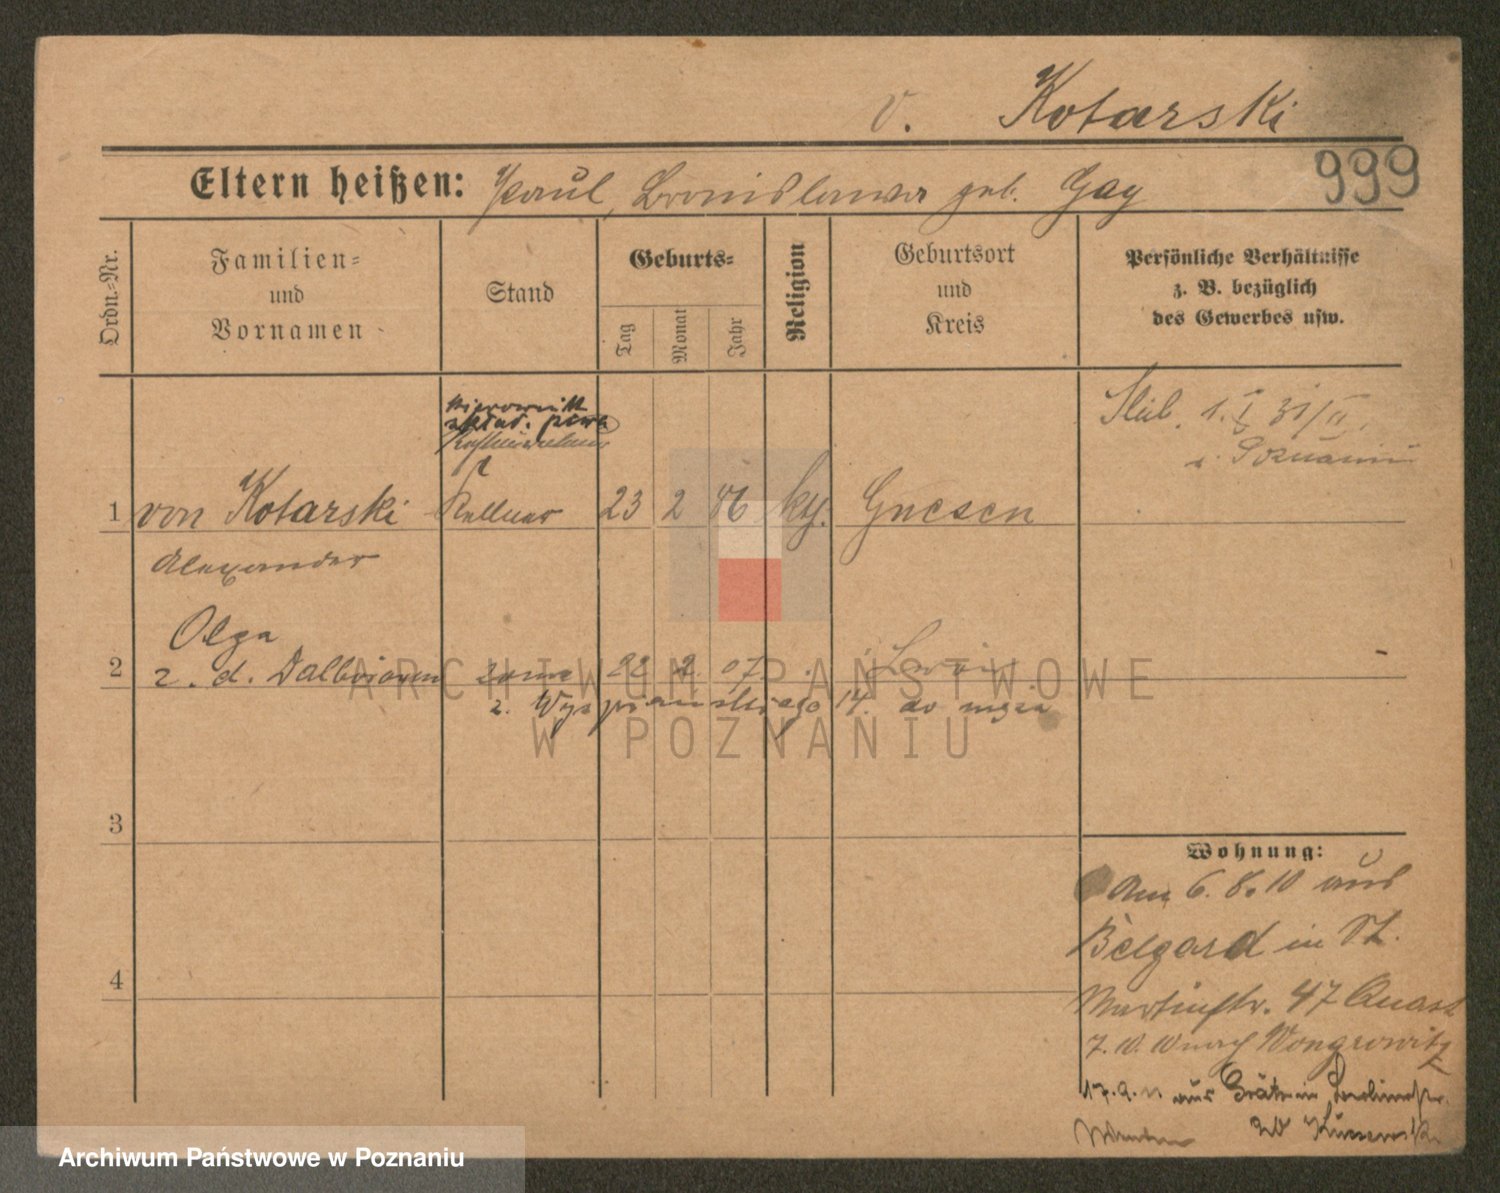 v. Kotarski
999
Eltern heißen: Paul, Bronislawa geb. Gay
Ordn.-Nr.
Familien-
und
Vornamen
Stand
Geburts-
Tag
Monat
Jahr
Religion
Geburtsort
und
Kreis
Persönliche Verhältnisse
z. B. bezüglich
des Gewerbes usw.
kierownik
Ślub. 1. 31/II.
w Poznaniu
1 von Kotarski Kellner 23 2 86 kth. Gnesen
Alexander
Olga
2 z. d. Dalborowa żona 22 2. 07
z. Wyspiańskiego 14. do męża
3
4
Wohnung:
Am 6.8.10 aus
Belgard in St.
Martinstr. 47
7. nach Wongrowitz
17.9.11 aus Grätz in
bei
ARCHIWUM PAŃSTWOWE
W POZNANIU
Archiwum Państwowe w Poznaniu